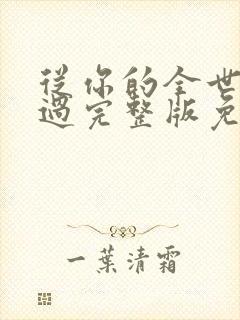 從你的全世
過完整版免
一葉清霜